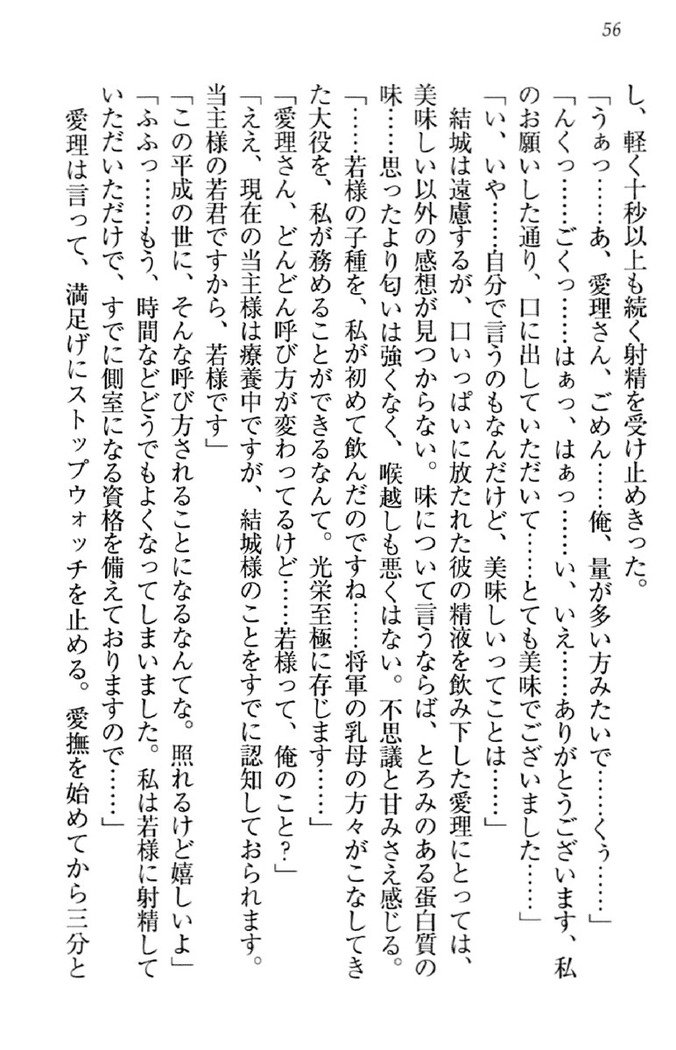 56
し、軽く十秒以上も続く射精を受け止めきった。
「うぁっ……あ、愛理さん、ごめん……俺、量が多い方みたいで……くぅ……」
「んくっ……ごくっ……はぁっ、はぁっ……い、いえ……ありがとうございます、私
のお願いした通り、口に出していただいて……とても美味でございました……」
「い、いや……自分で言うのもなんだけど、美味しいってことは……」
結城は遠慮するが、口いっぱいに放たれた彼の精液を飲み下した愛理にとっては、
美味しい以外の感想が見つからない。味について言うならば、とろみのある蛋白質の
味……思ったより匂いは強くなく、喉越しも悪くはない。不思議と甘みさえ感じる。
「……若様の子種を、私が初めて飲んだのですね……将軍の乳母の方々がこなしてき
た大役を、私が務めることができるなんて。光栄至極に存じます……」
「愛理さん、どんどん呼び方が変わってるけど……若様って、俺のこと？」
「ええ、現在の当主様は療養中ですが、結城様のことをすでに認知しておられます。
当主様の若君ですから、若様です」
「この平成の世に、そんな呼び方されることになるなんてな。照れるけど嬉しいよ」
「ふふっ……もう、時間などどうでもよくなってしまいました。私は若様に射精して
いただいただけで、すでに側室になる資格を備えておりますので……」
愛理は言って、満足げにストップウォッチを止める。愛撫を始めてから三分と